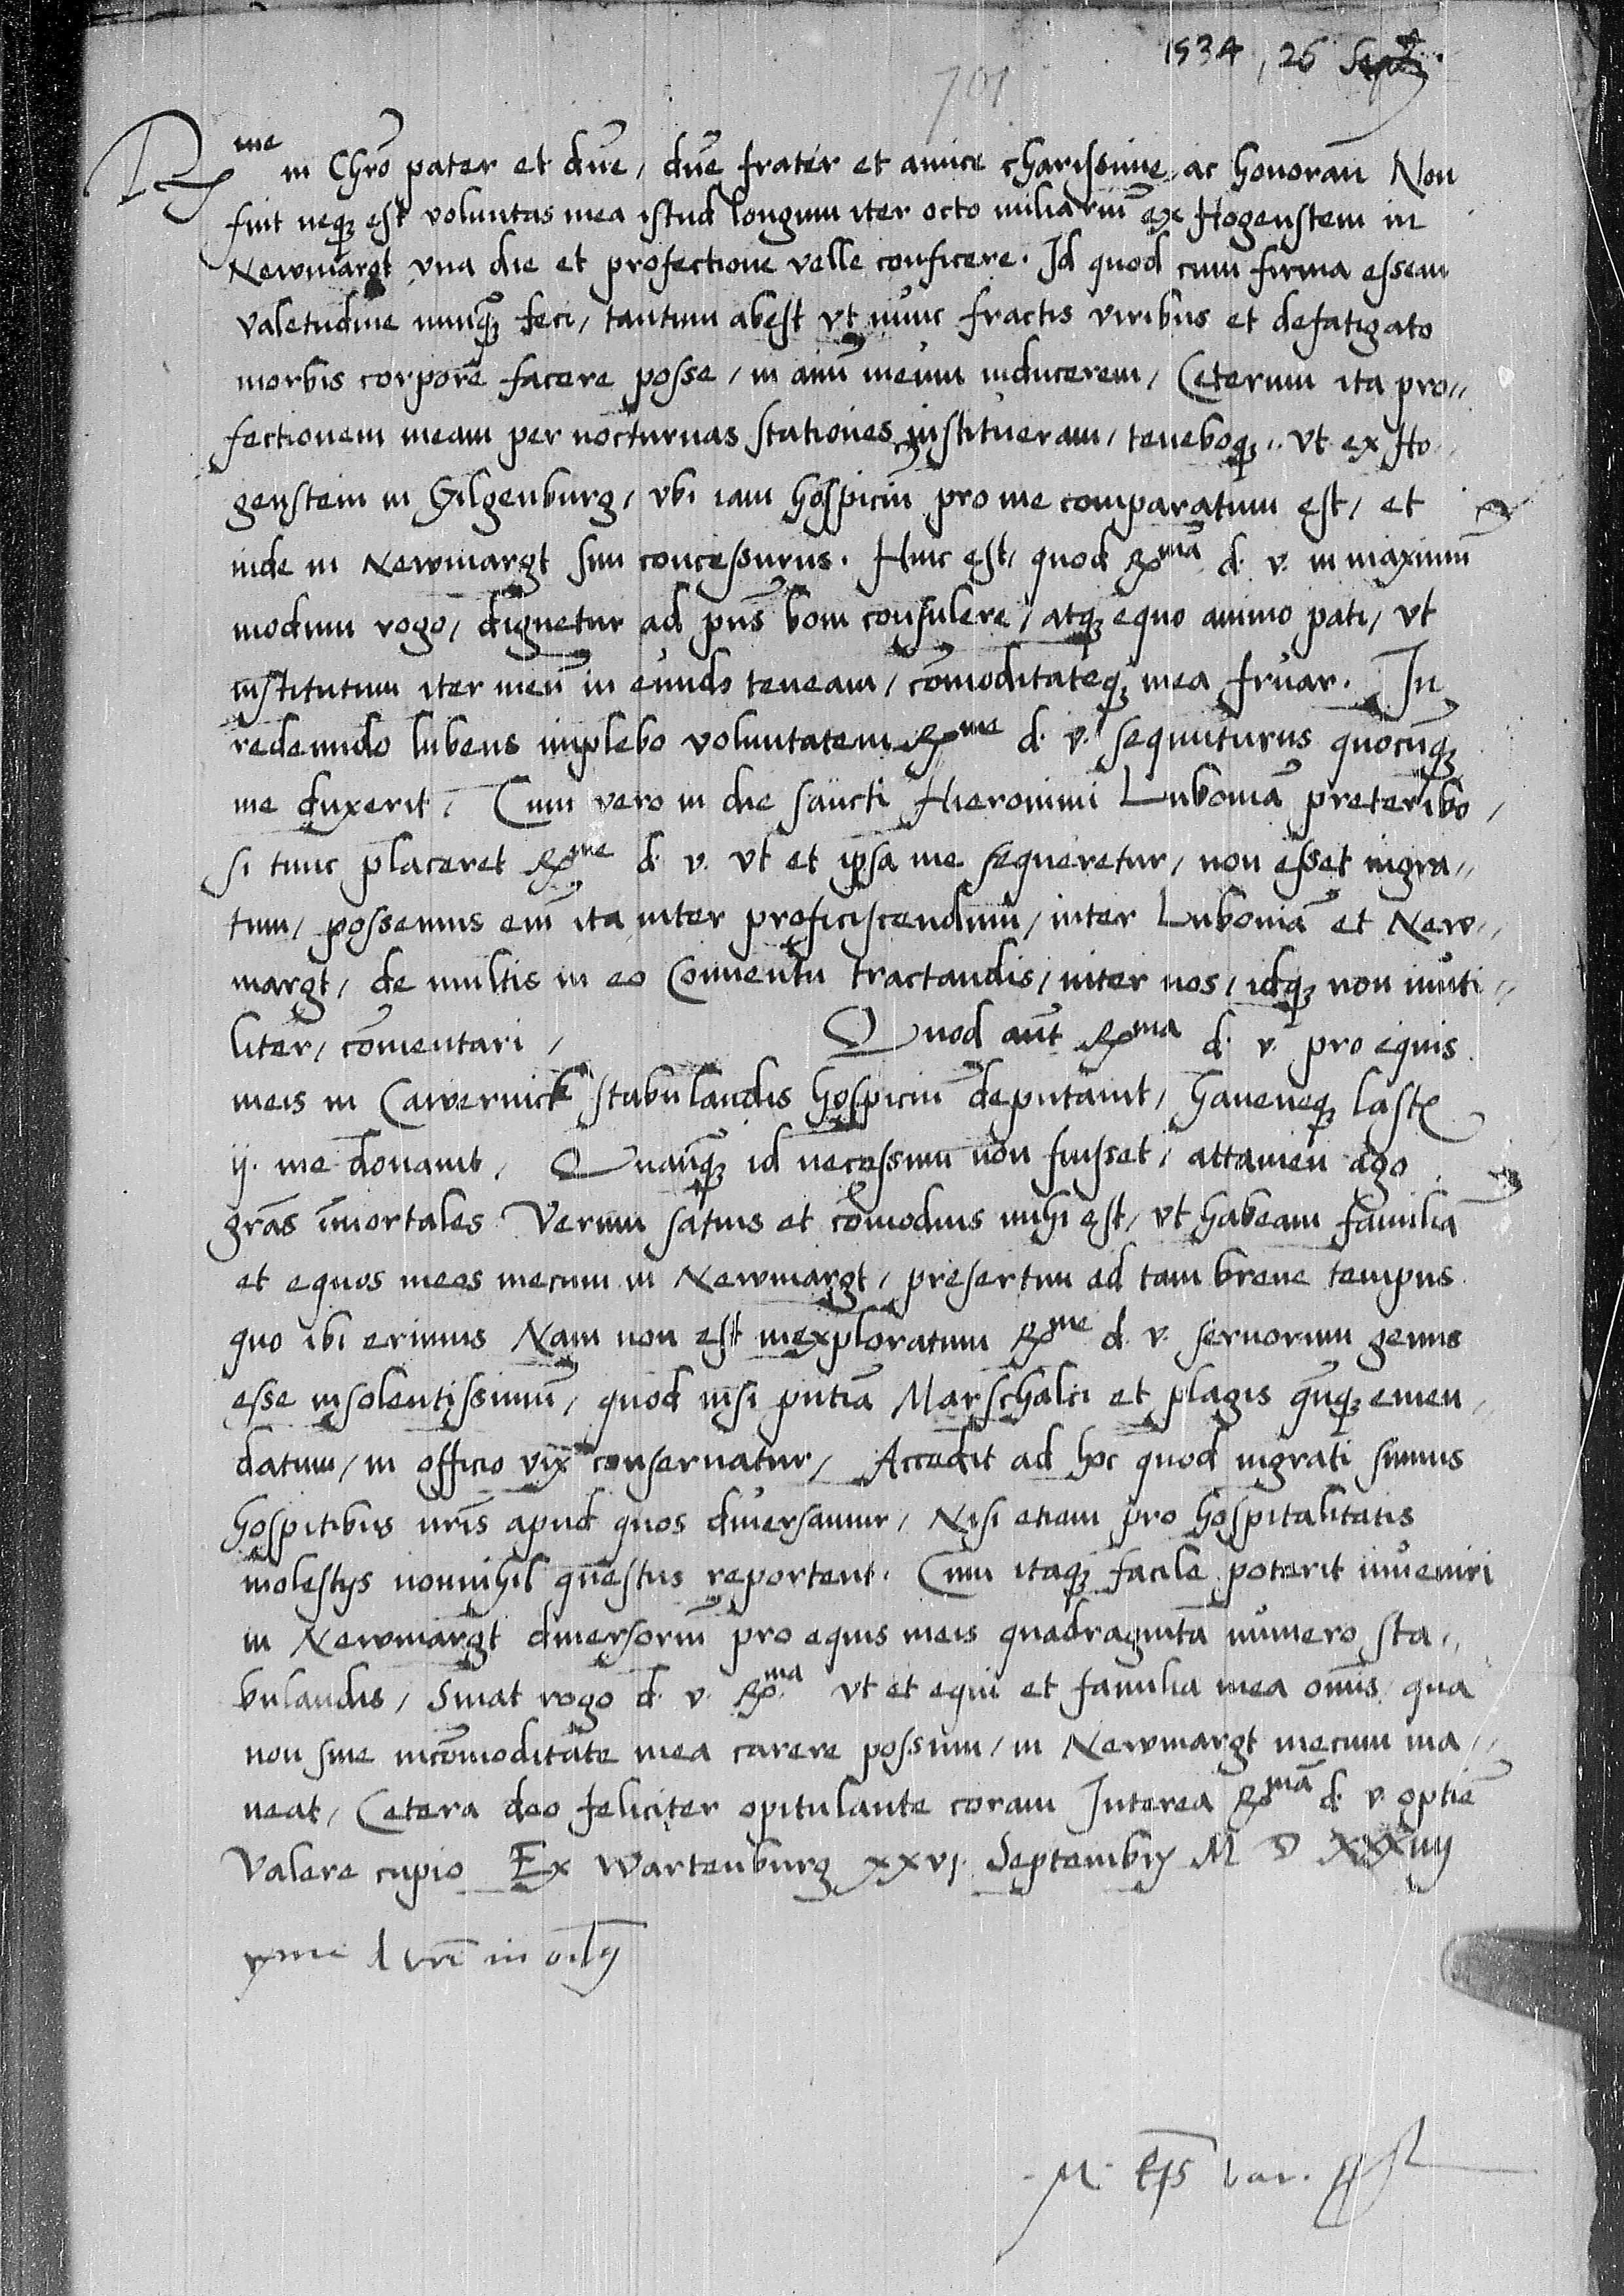 1534, 26 Sept.
701
R^me in Chr͠o pater et dn͠e, dn͠e frater et amice charissime, ac honoran͠ Non
fuit neqꝫ est voluntas mea istud longum iter octo miliariu͠ ex Hogenstein in
Newmargt vna die et profectione velle conficere. Id quod cum firma essem
valetudine nunqꝫ feci, tantum abest vt nunc fractis viribus et defatigato
morbis corpore facere posse, in ani͠u meum inducerem, Ceterum ita pro„
fectionem meam per nocturnas stationes institueram, teneboqꝫ. vt ex Ho„
genstein in Gilgenburg, vbi iam hospiciu͠ pro me comparatum est, et
inde in Newmargt sim concessurus. Hinc est, quod R^ma͠ d. v. in maximu͠
modum rogo, dignetur ad pn͠s boni consulere, atqꝫ equo animo pati, vt
institutum iter meu͠ in eundo teneam, co͠moditateqꝫ mea fruar. In
redeundo lubens implebo voluntatem R^me d. v. sequuturus quocu͠qꝫ
me duxerit. Cum vero in die sancti Hieronimi Luboniam͠ preteribo,
si tunc placeret R^me d. v. vt et ipsa me sequeretur, non esset ingra„
tum, possemus eni͠ ita inter proficiscendum, inter Lubonia͠ et New„
margt, de multis in eo Conuentu tractandis, inter nos, idqꝫ non inuti„
liter, co͠mentari, Quod aut͠ R^ma d. v. pro equis
meis in Cawernick stabulandis hospiciu͠ deputauit, haueneqꝫ last
ij. me donauit, Quanqꝫ id necessum non fuisset, attamen ago
gra͠s im͠ortales Verum satius et co͠modius mihi est, vt habeam familia͠
et equos meos mecum in Newmargt, presertim ad tam breue tempus
quo ibi erimus Nam non est inexploratum R^me d. v. seruorum genus
esse insolentissimu͠, quod nisi pn͠tia͠ Marschalci et plagis qn͠qꝫ emen„
datum, in officio vix conseruatur, Accedit ad hoc quod ingrati sumus
hospitibus nr͠is apud quos diuersamur, Nisi etiam pro hospitalitatis
molestijs nonnihil questus reportent. Cum itaqꝫ facile poterit inueniri
in Newmargt diuersoriu͠ pro equis meis quadraginta numero sta„
bulandis, Sinat rogo d. v. R^ma vt et equi et familia mea omi͠s, qua
non sine inco͠moditate mea carere possum, in Newmargt mecum ma„
neat, Cetera deo feliciter opitulante coram Interea R^ma͠ d. v. optime͠
Valere cupio Ex Wartenburg xxvj. Septembrꝭ M D XXXiiij
M. Ep͠s Var.